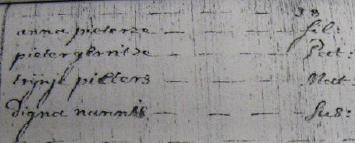 anna pieterse — — — fil:
pieter gerritse — — — Pat:
trijnje pieters — — — Mat:
Digna nannis — — — Sus: